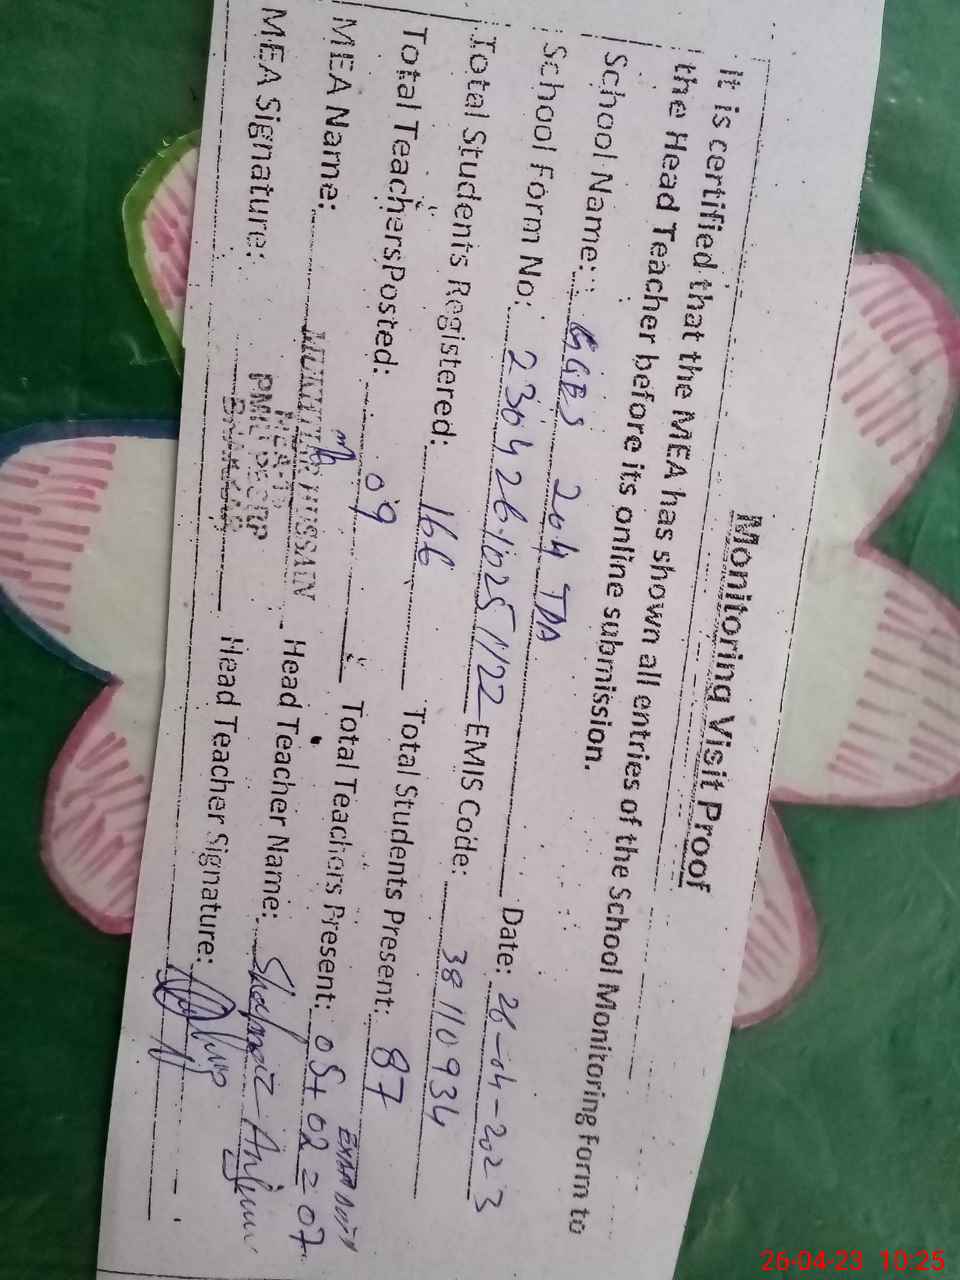 Monitoring Visit Proof
It is certified that the MEA has shown all entries of the School Monitoring Form to
the Head Teacher before its online submission.
School Name: GGES 204 TDA Date: 26-04-2023
School Form No: EMIS Code: 38110934
Total Students Registered: 166 Total Students Present: 87
Total Teachers Posted: 09 Total Teachers Present: 05+02=07
MEA Name: MUKHTIAR HUSSAIN Head Teacher Name: Anjum
MEA Signature: Head Teacher Signature:
26-04-23 10:25